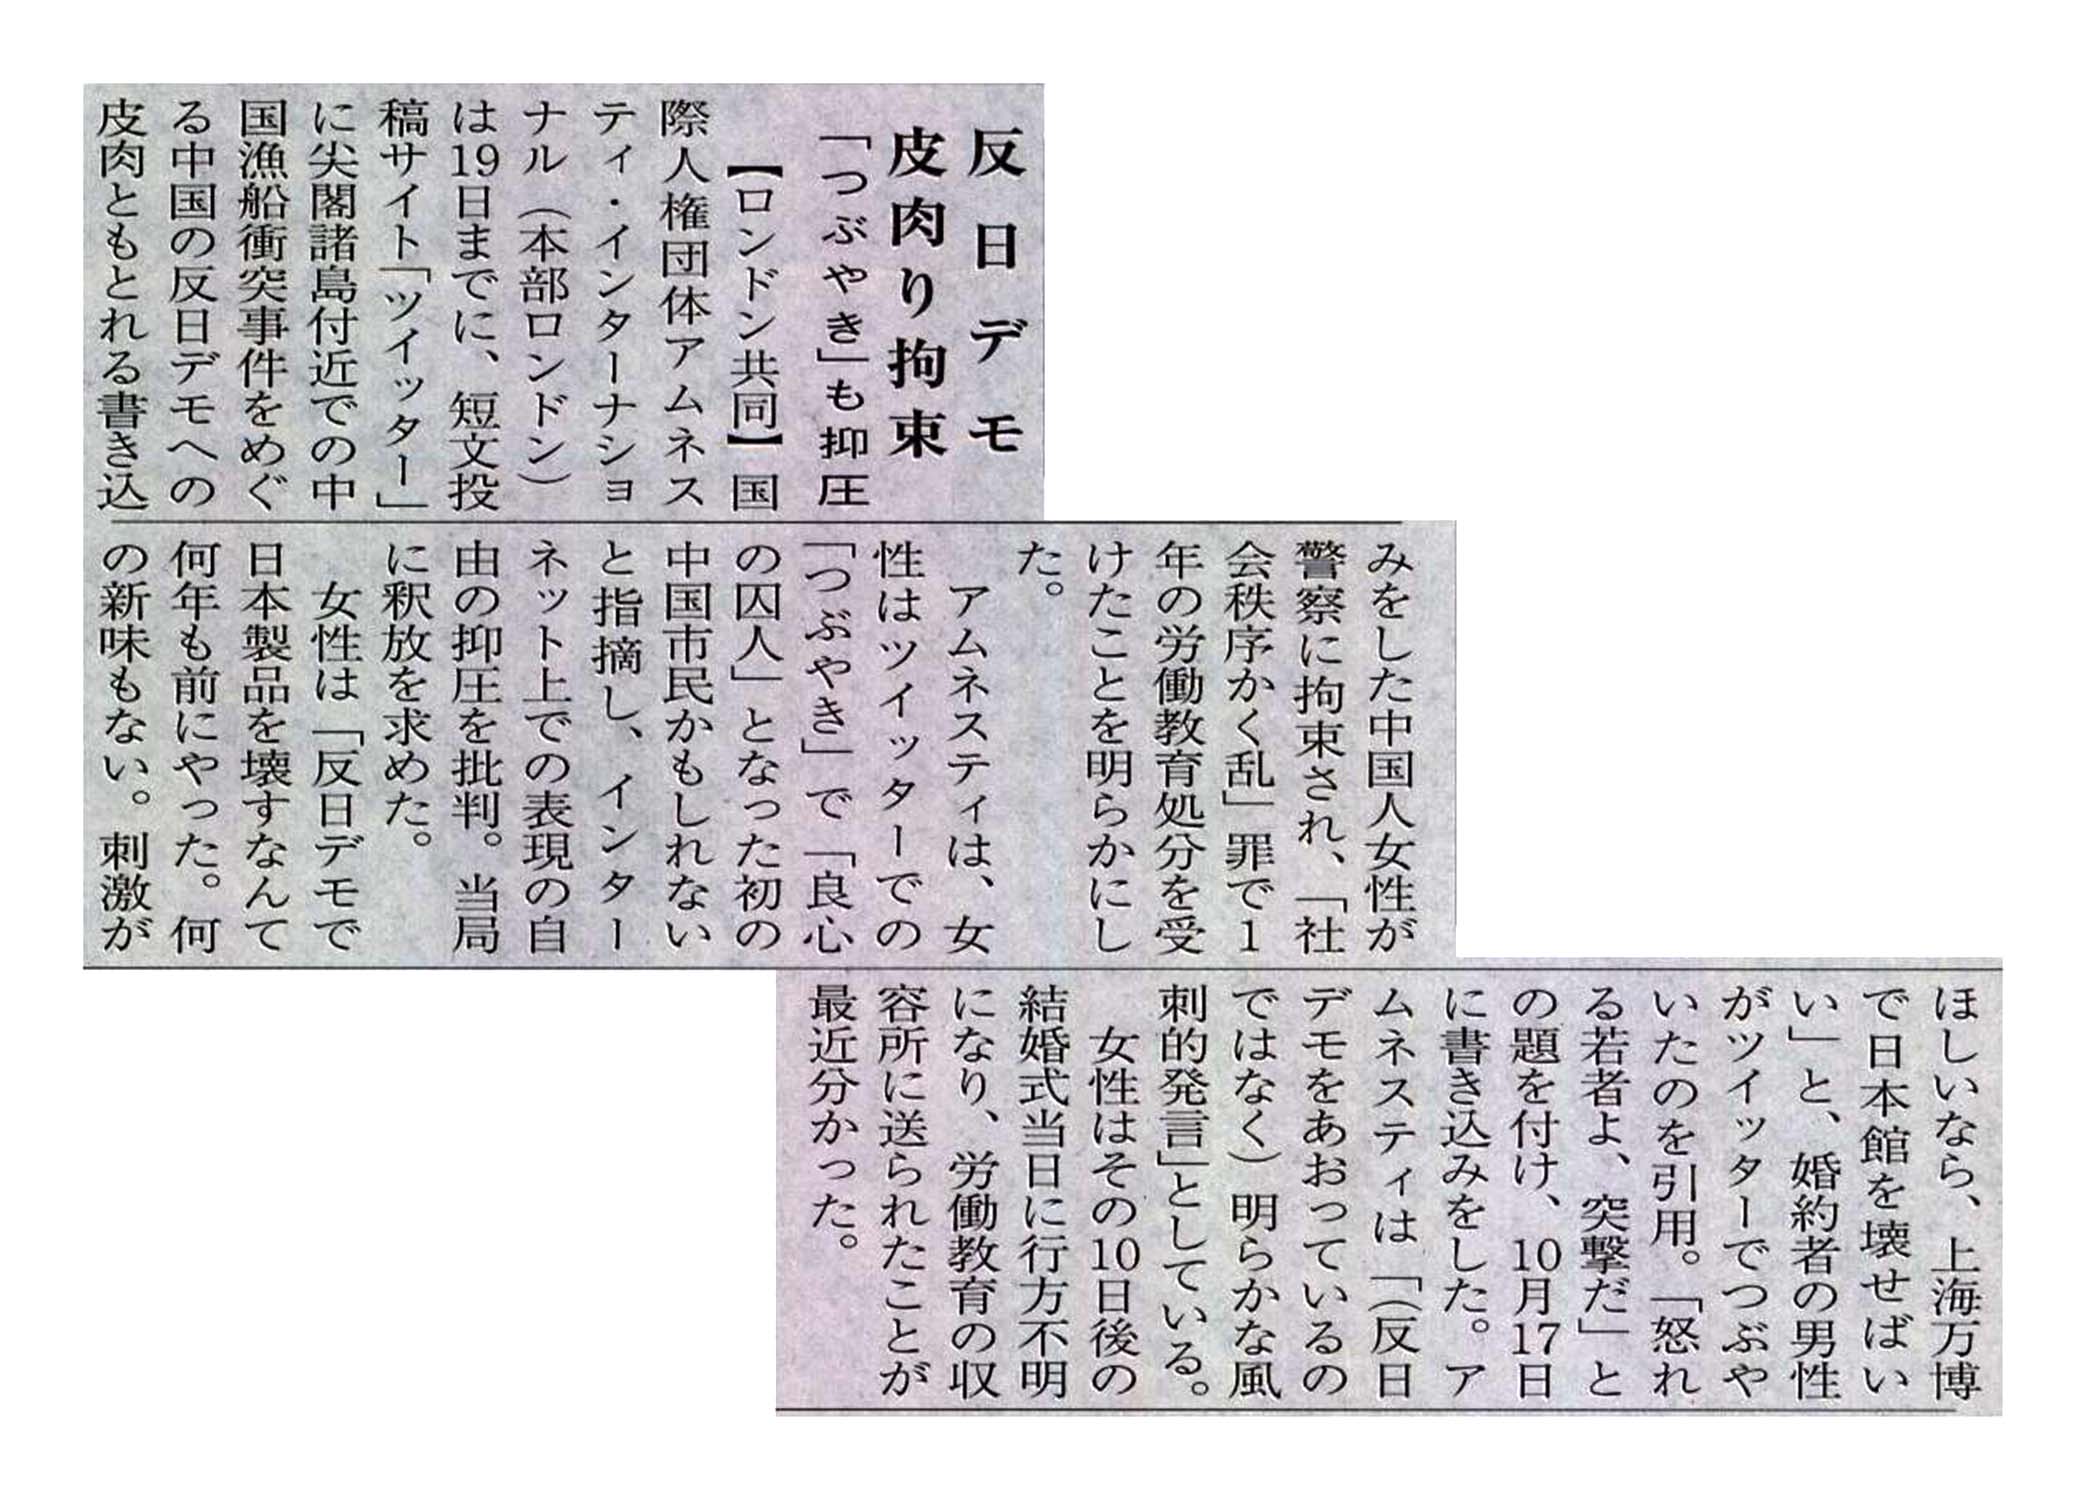 反日デモ
皮肉り拘束
「つぶやき」も抑圧
【ロンドン共同】国
際人権団体アムネス
ティ・インターナショ
ナル（本部ロンドン）
は19日までに、短文投
稿サイト「ツイッター」
に尖閣諸島付近での中
国漁船衝突事件をめぐ
る中国の反日デモへの
皮肉ともとれる書き込
みをした中国人女性が
警察に拘束され、「社
会秩序かく乱」罪で1
年の労働教育処分を受
けたことを明らかにし
た。
アムネスティは、女
性はツイッターでの
「つぶやき」で「良心
の囚人」となった初の
中国市民かもしれない
と指摘し、インター
ネット上での表現の自
由の抑圧を批判。当局
に釈放を求めた。
女性は「反日デモで
日本製品を壊すなんて
何年も前にやった。何
の新味もない。刺激が
ほしいなら、上海万博
で日本館を壊せばい
い」と、婚約者の男性
がツイッターでつぶや
いたのを引用。「怒れ
る若者よ、突撃だ」と
の題を付け、10月17日
に書き込みをした。ア
ムネスティは「（反日
デモをあおっているの
ではなく）明らかな風
刺的発言」としている。
女性はその10日後の
結婚式当日に行方不明
になり、労働教育の収
容所に送られたことが
最近分かった。